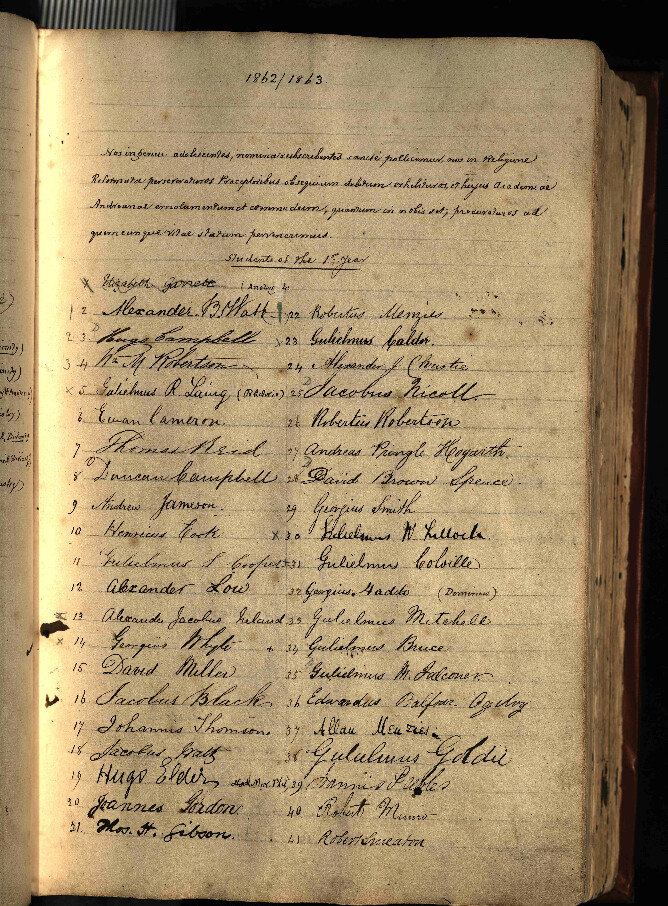 1862/1863.
Nos ingenui adolescentes, nomina subscribentes sancte pollicemur nos in Religione
Reformata perseveraturos Praeceptoribus obsequium debitum exhibituros, et hujus Academiae
Andreanae emolumentum et commodum, quantum in nobis est, procuraturos ad
quemcunque vitae statum pervenerimus.
Students of the 1st Year
x Elizabeth Garrett
1 2 Alexander B. Watt
2 3 Hugo Campbell
3 4 Wm M Robertson
x 5 Gulielmus R. Laing
6 Ewan Cameron
7 Thomas Reid
8 Duncan Campbell
9 Andrew Jameson
10 Henricus Cook
11 Gulielmus S Cooper
12 Alexander Low
x 13 Alexander Jacobus Ireland
x 14 Georgius Whyte
15 David Miller
16 Jacobus Black
17 Johannis Thomson
18 Jacobus Watt
19 Hugo Elder
20 Joannes Gordon
21 Thos. H. Gibson.
22 Robertus Menzies
23 Gulielmus Calder.
24 Alexander J Christie
25 Jacobus Nicoll
26 Robertus Robertson
27 Andreas Pringle Hogarth.
28 David Brown Spence
29 Georgius Smith
x 30 Gulielmus W. Tulloch.
31 Gulielmus Colville
32 Georgius (Dominus)
33 Gulielmus Mitchell
+ 34 Gulielmus Bruce
35 Gulielmus M. Falconer
36 Edwardus Balfour Ogilvy
37 Allan Menzies
38 Gulielmus Goldie
39 Peebles
40 Robert Munro
41 Robert Smeaton